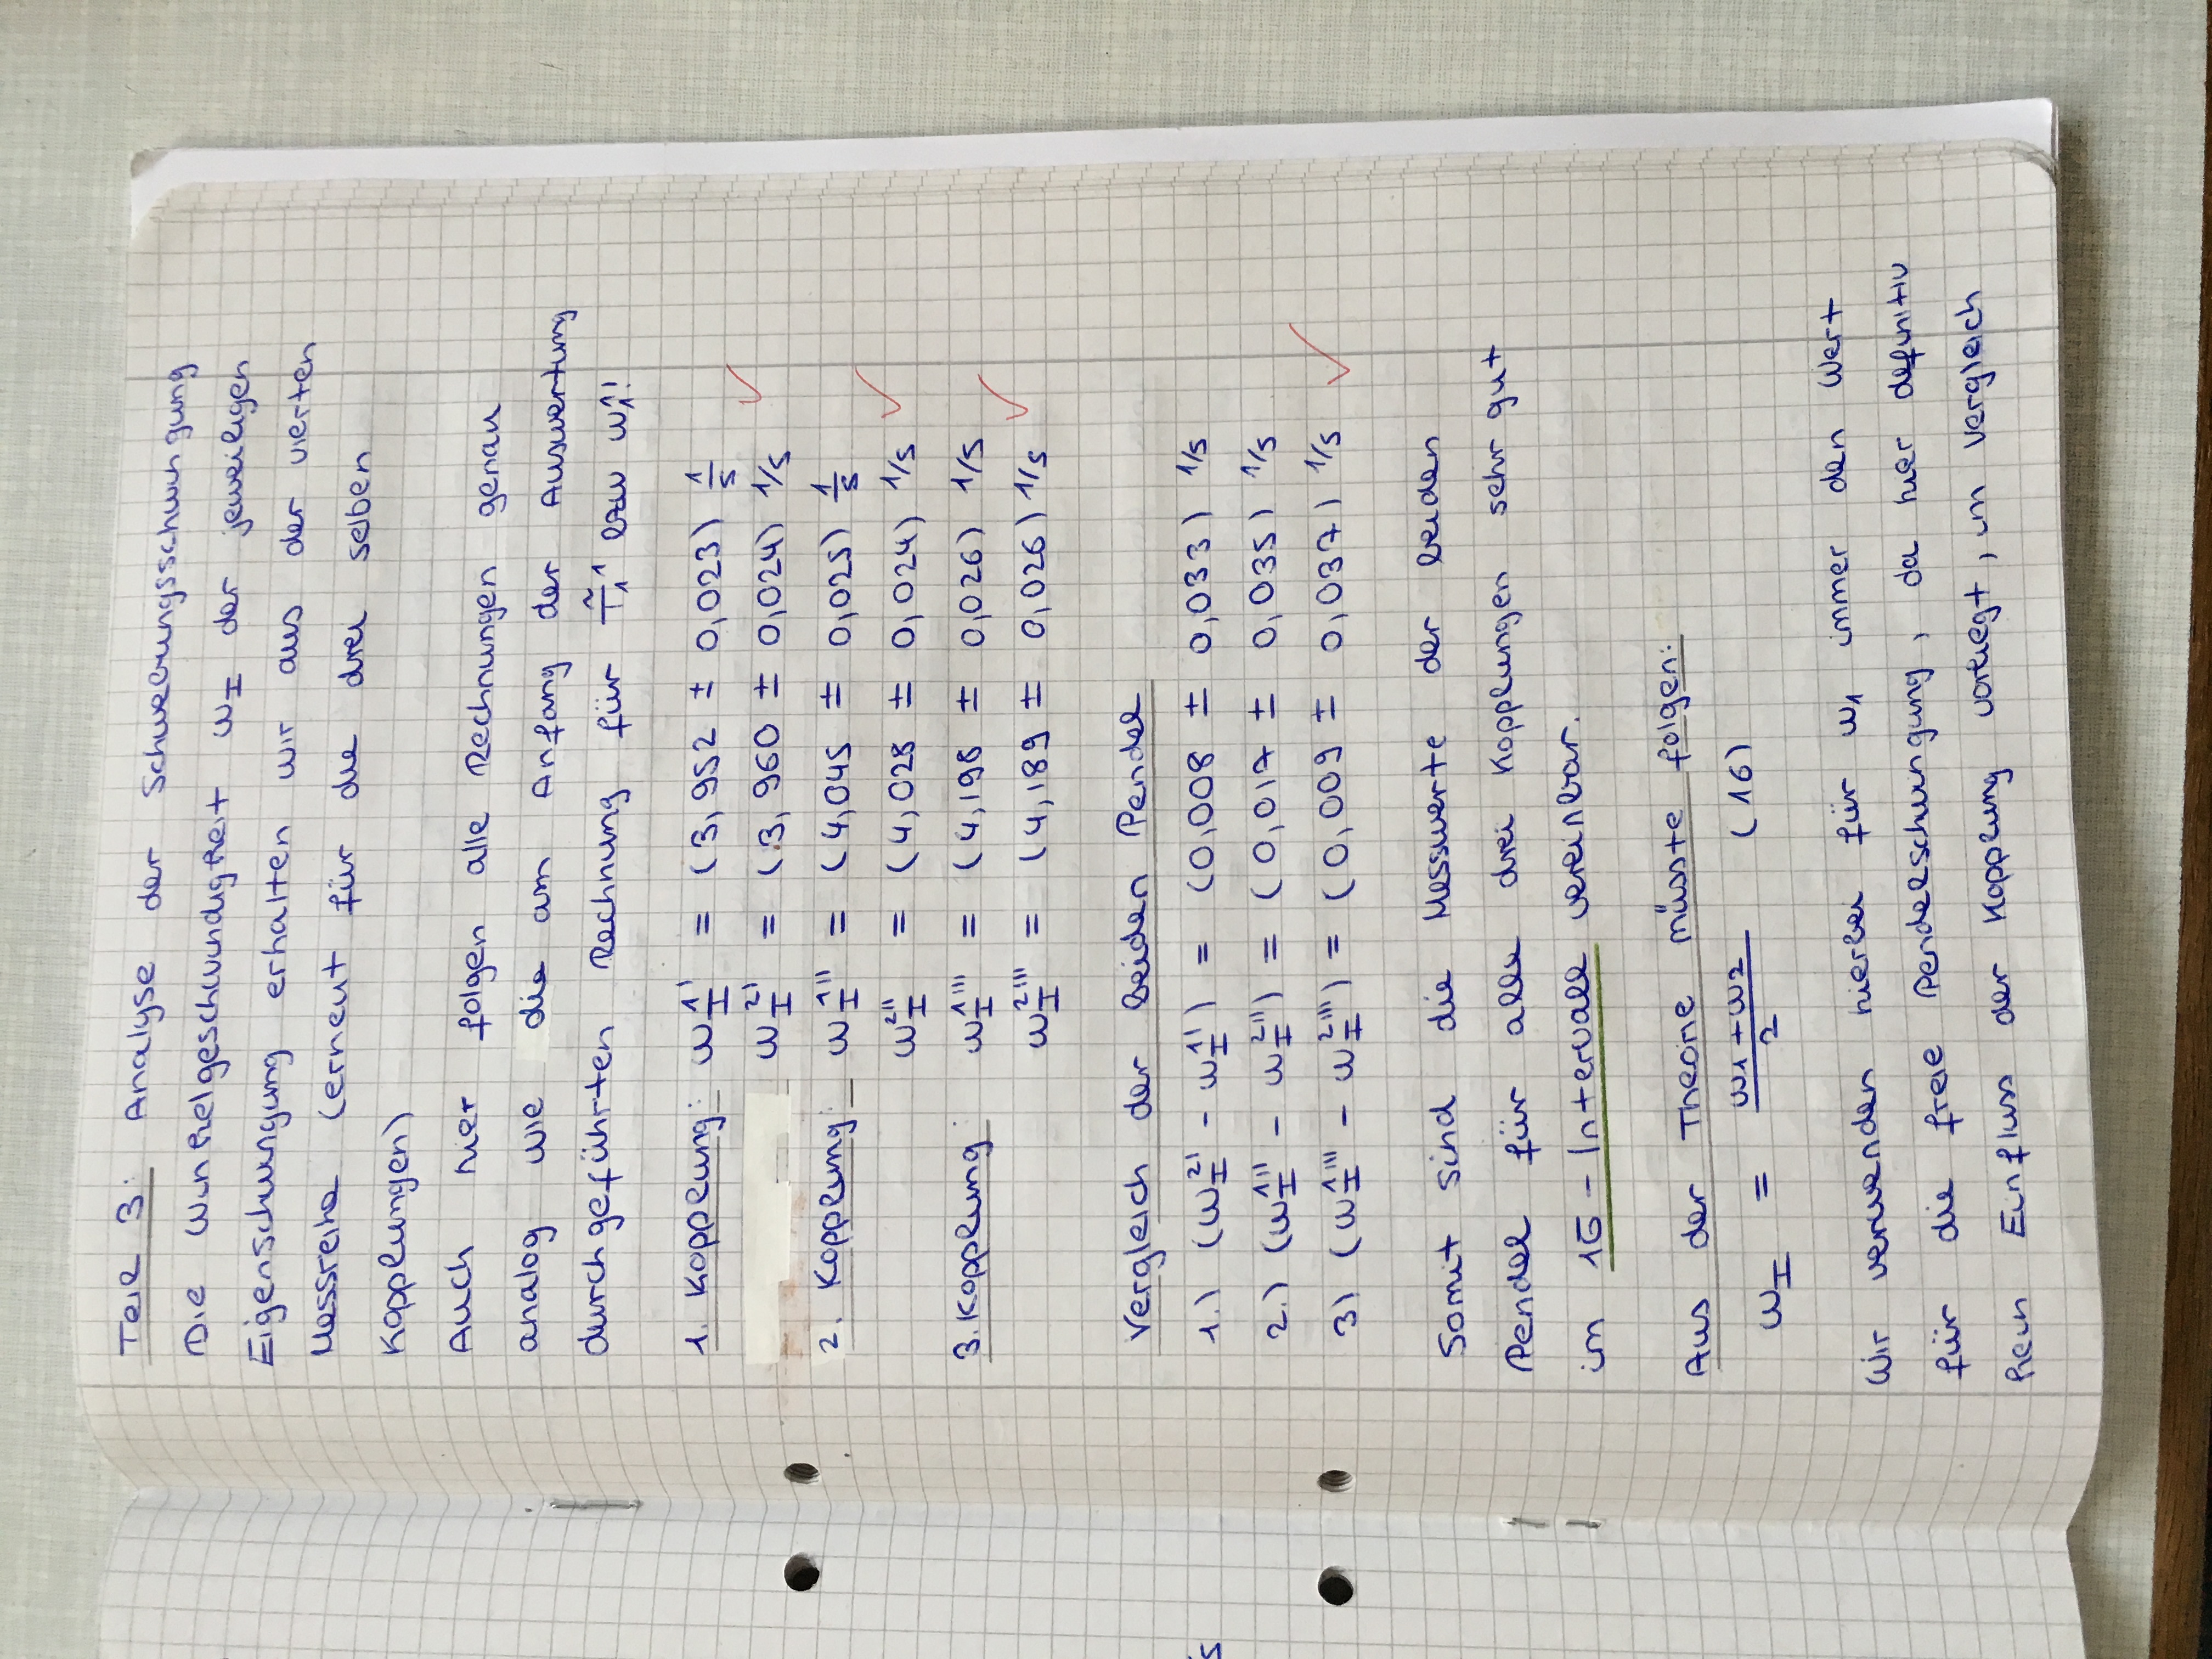 Teil 3: Analyse der Schwebungsschwingung
Die Winkelgeschwindigkeit ω_I der jeweiligen
Eigenschwingung erhalten wir aus der vierten
Messreihe (erneut für die drei selben
Kopplungen)
Auch hier folgen alle Rechnungen genau
analog wie die am Anfang der Auswertung
durchgeführten Rechnung für T̃₁¹ bzw ω₁¹!
1. Kopplung: ω_I^1' = (3,952 ± 0,023) 1/s
ω_I^2' = (3,960 ± 0,024) 1/s
2. Kopplung: ω_I^1'' = (4,045 ± 0,025) 1/s
ω_I^2'' = (4,028 ± 0,024) 1/s
3. Kopplung: ω_I^1''' = (4,198 ± 0,026) 1/s
ω_I^2''' = (4,189 ± 0,026) 1/s
Vergleich der beiden Pendel
1.) (ω_I^2' - ω_I^1') = (0,008 ± 0,033) 1/s
2.) (ω_I^1'' - ω_I^2'') = (0,017 ± 0,035) 1/s
3) (ω_I^1''' - ω_I^2''') = (0,009 ± 0,037) 1/s
Somit sind die Messwerte der beiden
Pendel für alle drei Kopplungen sehr gut
im 1σ-Intervall vereinbar.
Aus der Theorie müsste folgen:
ω_I = (ω₁+ω₂)/2 (16)
Wir verwenden hierbei für ω₁ immer den Wert
für die freie Pendelschwingung, da hier definitiv
kein Einfluss der Kopplung vorliegt, im Vergleich
s